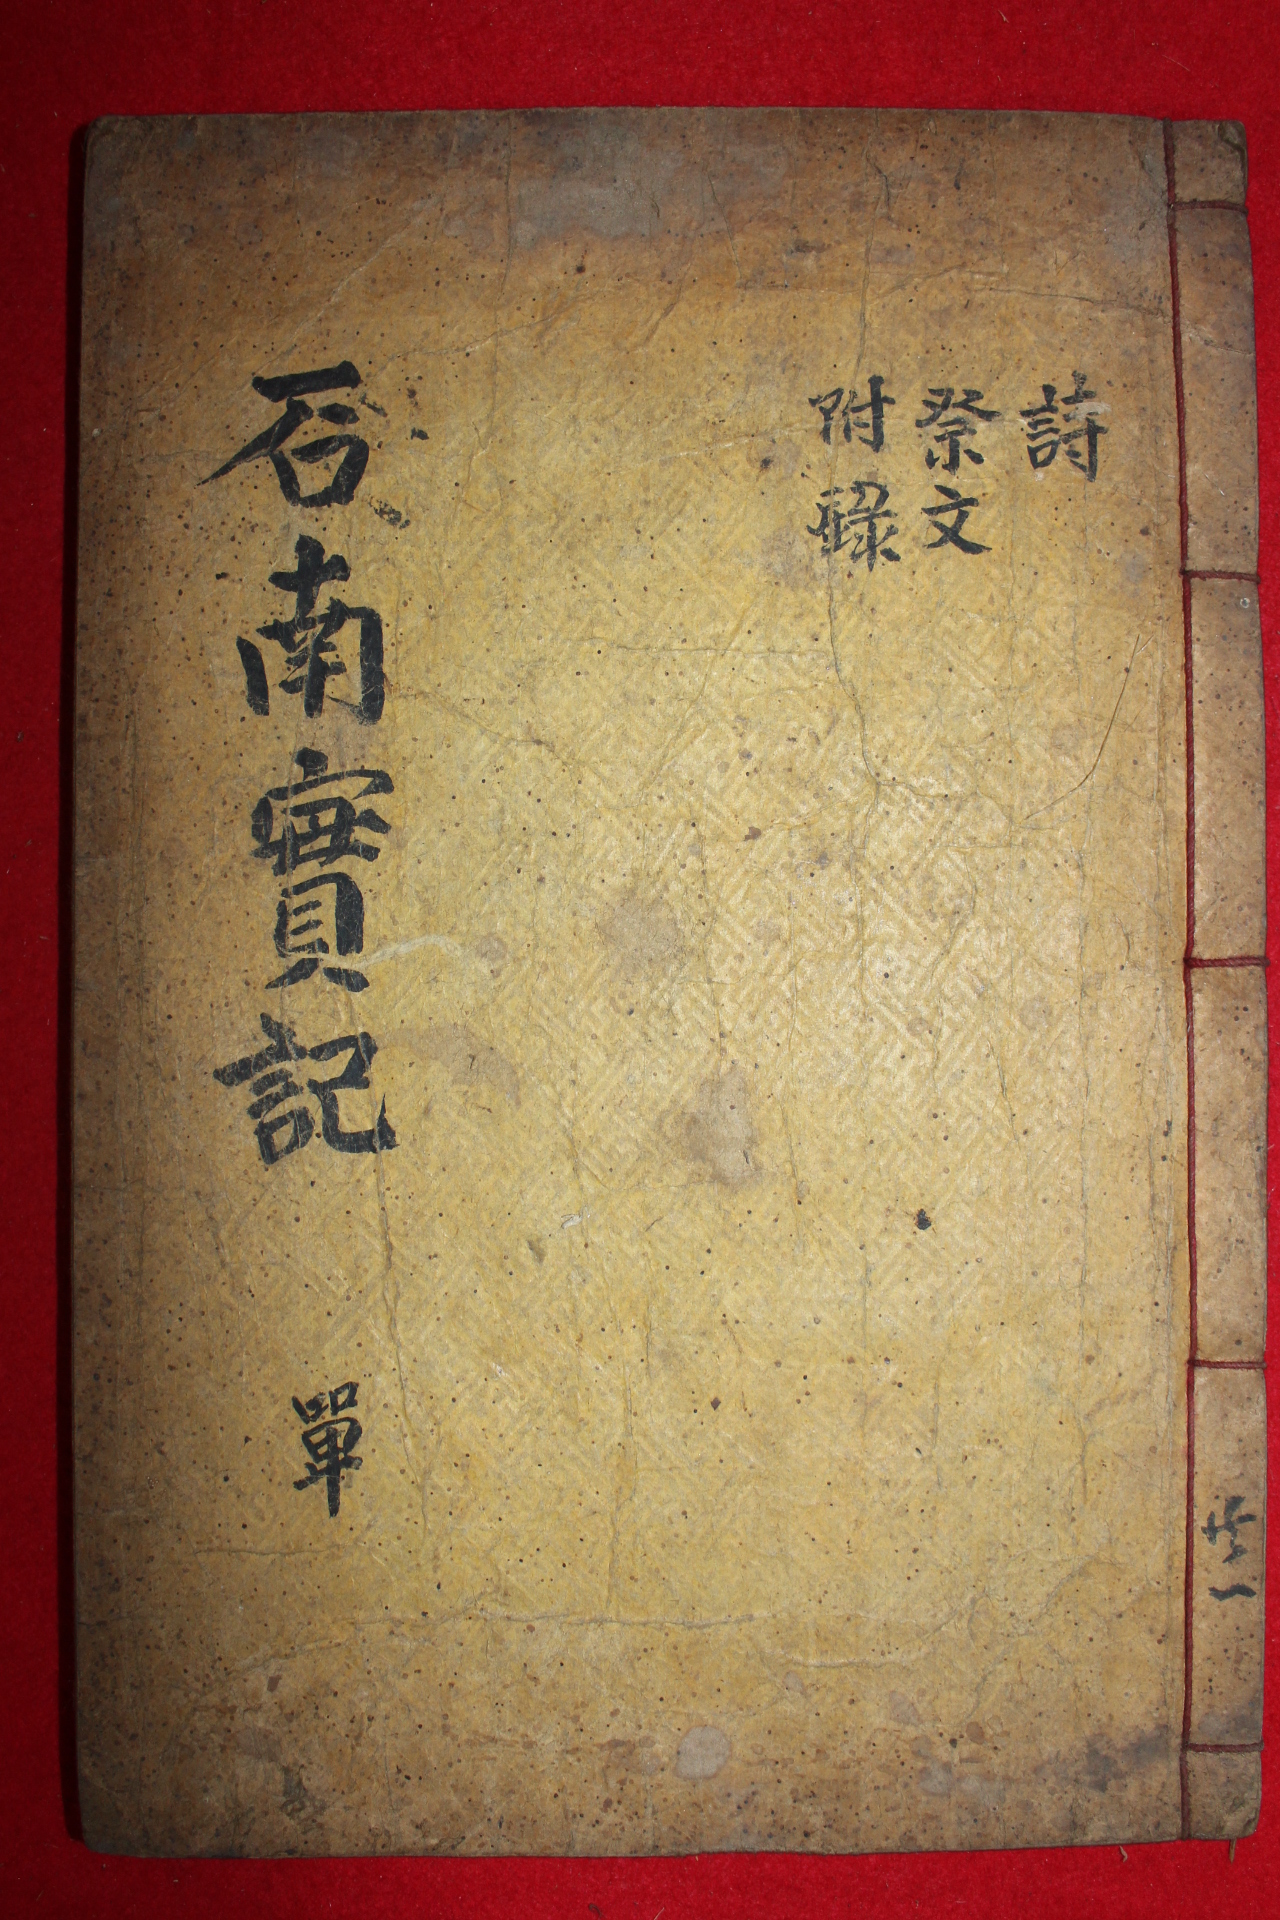 詩
祭文
附錄
石南實記
單
共一